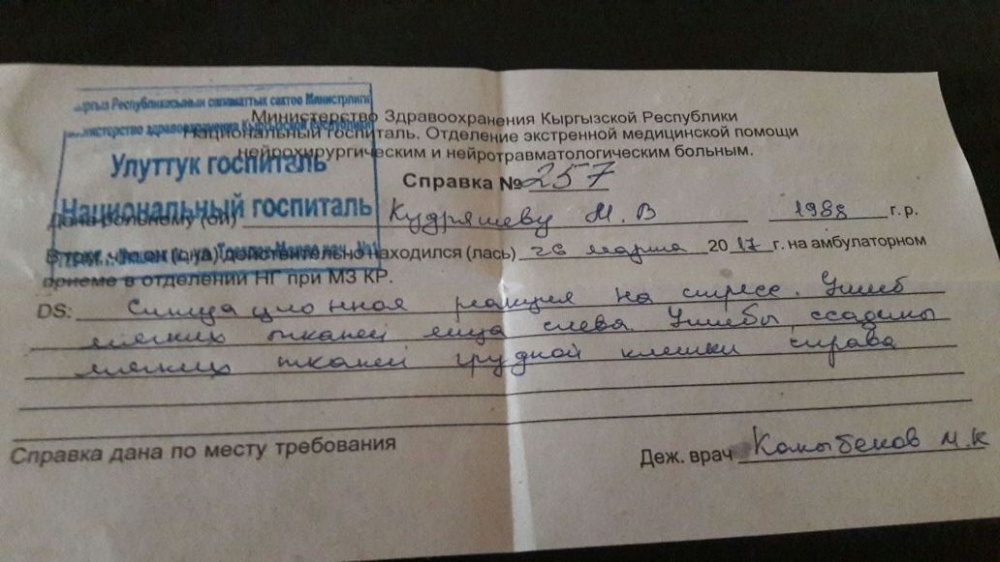 Кыргыз Республикасынын саламаттык сактоо Министрлиги
Министерство здравоохранения Кыргызской Республики
Улуттук госпиталь
Национальный госпиталь
Министерство Здравоохранения Кыргызской Республики
Национальный госпиталь. Отделение экстренной медицинской помощи
нейрохирургическим и нейротравматологическим больным.
Справка № 257
Дана больному (ой) Кудряшеву М. В 1988 г. р.
В том, что он (она) действительно находился (лась) 26 марта 2017 г. на амбулаторном
приеме в отделении НГ при МЗ КР.
DS: Ситуационная реакция на стресс. Ушиб
мягких тканей лица слева. Ушибы, ссадины
мягких тканей грудной клетки справа
Справка дана по месту требования
Деж. врач М.К